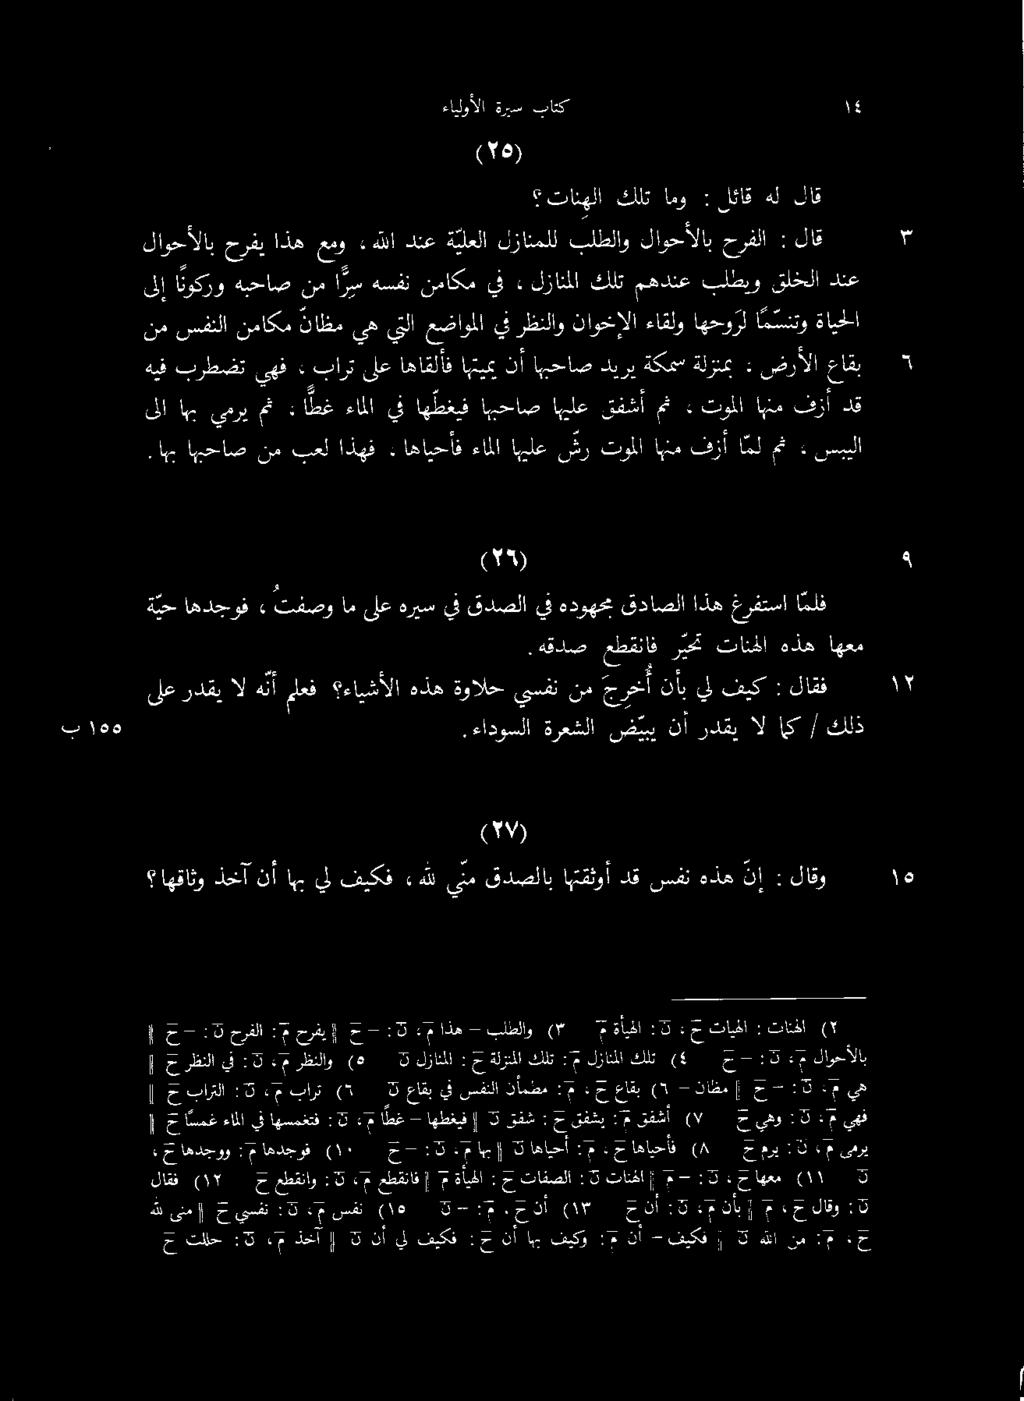 ١٤ كتاب سيرة الأولياء
(٢٥)
قال له قائل : وما تلك الهِنات؟
٣ قال : الفرح بالأحوال والطلب للمنازل العليّة عند الله ، ومع هذا يفرح بالأحوال
عند الخلق ويطلب عندهم تلك المنازل ، في مكامن نفسه سِرًّا من صاحبه وركونًا إلى
الحياة وتنسّمًا لرَوحها ولقاء الإخوان والنظر في المواضع التي هي مظانّ مكامن النفس من
٦ بقاع الأرض ، بمنزلة سمكة يريد صاحبها أن يميتها فألقاها على تراب ، فهي تضطرب فيه
قد أزف منها الموت ، ثم أشفق عليها صاحبها فيغطّها في الماء غطًّا ، ثم يرمي بها الى
اليبس ، ثم لمّا أزف منها الموت رشّ عليها الماء فأحياها . فهذا لعب من صاحبها بها .
٩ (٢٦)
فلمّا استفرغ هذا الصادق مجهوده في الصدق في سيره على ما وصفتُ ، فوجدها حيّة
معها هذه الهنات تحيّر فانقطع صدقه .
١٢ فقال : كيف لي بأن أُخرِجَ من نفسي حلاوة هذه الأشياء؟ فعلم أنّه لا يقدر على
ذلك / كما لا يقدر أن يبيّض الشعرة السوداء . ١٥٥ ب
(٢٧)
١٥ وقال : إنّ هذه نفس قد أوثقتها بالصدق منّي لله ، فكيف لي بها أن آخذ وثاقها؟
٢) الهنات : الهيات ح ، ن : الهيأة م ٣) والطلب – هذا م ، ن : – ح ‖ يفرح م : الفرح ن : – ح ‖
بالأحوال م ، ن : – ح ٤) تلك المنازل م : تلك المنزلة ح : المنازل ن ٥) والنظر م ، ن : في النظر ح ‖
هي م ، ن : – ح ‖ مظان – ٦) بقاع ح ، م : مضمأن النفس في بقاع ن ٦) تراب م ، ن : التراب ح ‖
فهي م ، ن : وهي ح ٧) أشفق م : يشفق ح : شفق ن ‖ فيغطها – غطا م ، ن : فتغمسها في الماء غمسا ح ‖
يرمى م ، ن : يرم ح ٨) فأحياها ح ، م : أحياها ن ‖ بها م ، ن : – ح ١٠) فوجدها م : ووجدها ح ،
ن ١١) معها ح ، ن : – م ‖ الهنات ن : الصفات ح : الهيأة م ‖ فانقطع م ، ن : وانقطع ح ١٢) فقال
ن : وقال ح ، م ‖ بأن م ، ن : أن ح ١٣) أن ح ، م : – ن ١٥) نفس م ، ن : نفسي ح ‖ منى لله
ح ، م : من الله ن ‖ فكيف – أن م : وكيف بها أن ح : فكيف لي أن ن ‖ آخذ م ، ن : حاللت ح